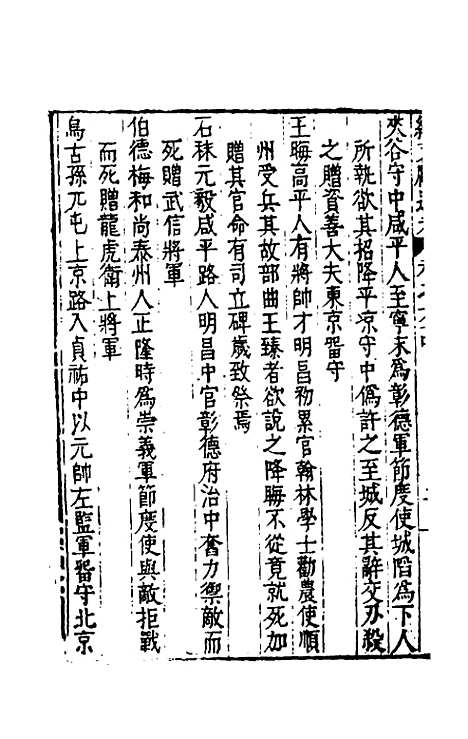 夾谷守中咸平人至寧末為彰德軍節度使城陷為下人
所執欲其招降平凉守中偽許之至城反其辭交刃殺
之贈資善大夫東京畱守
王晦高平人有將帥才明昌初累官翰林學士勸農使順
州受兵其故部曲王臻者欲說之降晦不從竟就死加
贈其官命有司立碑歲致祭焉
石秣元毅咸平路人明昌中官彰德府治中奮力禦敵而
死贈武信將軍
伯德梅和尚泰州人正隆時為崇義軍節度使與敵拒戰
而死贈龍虎衛上將軍
烏古孫兀屯上京路人貞祐中以元帥左監軍畱守北京